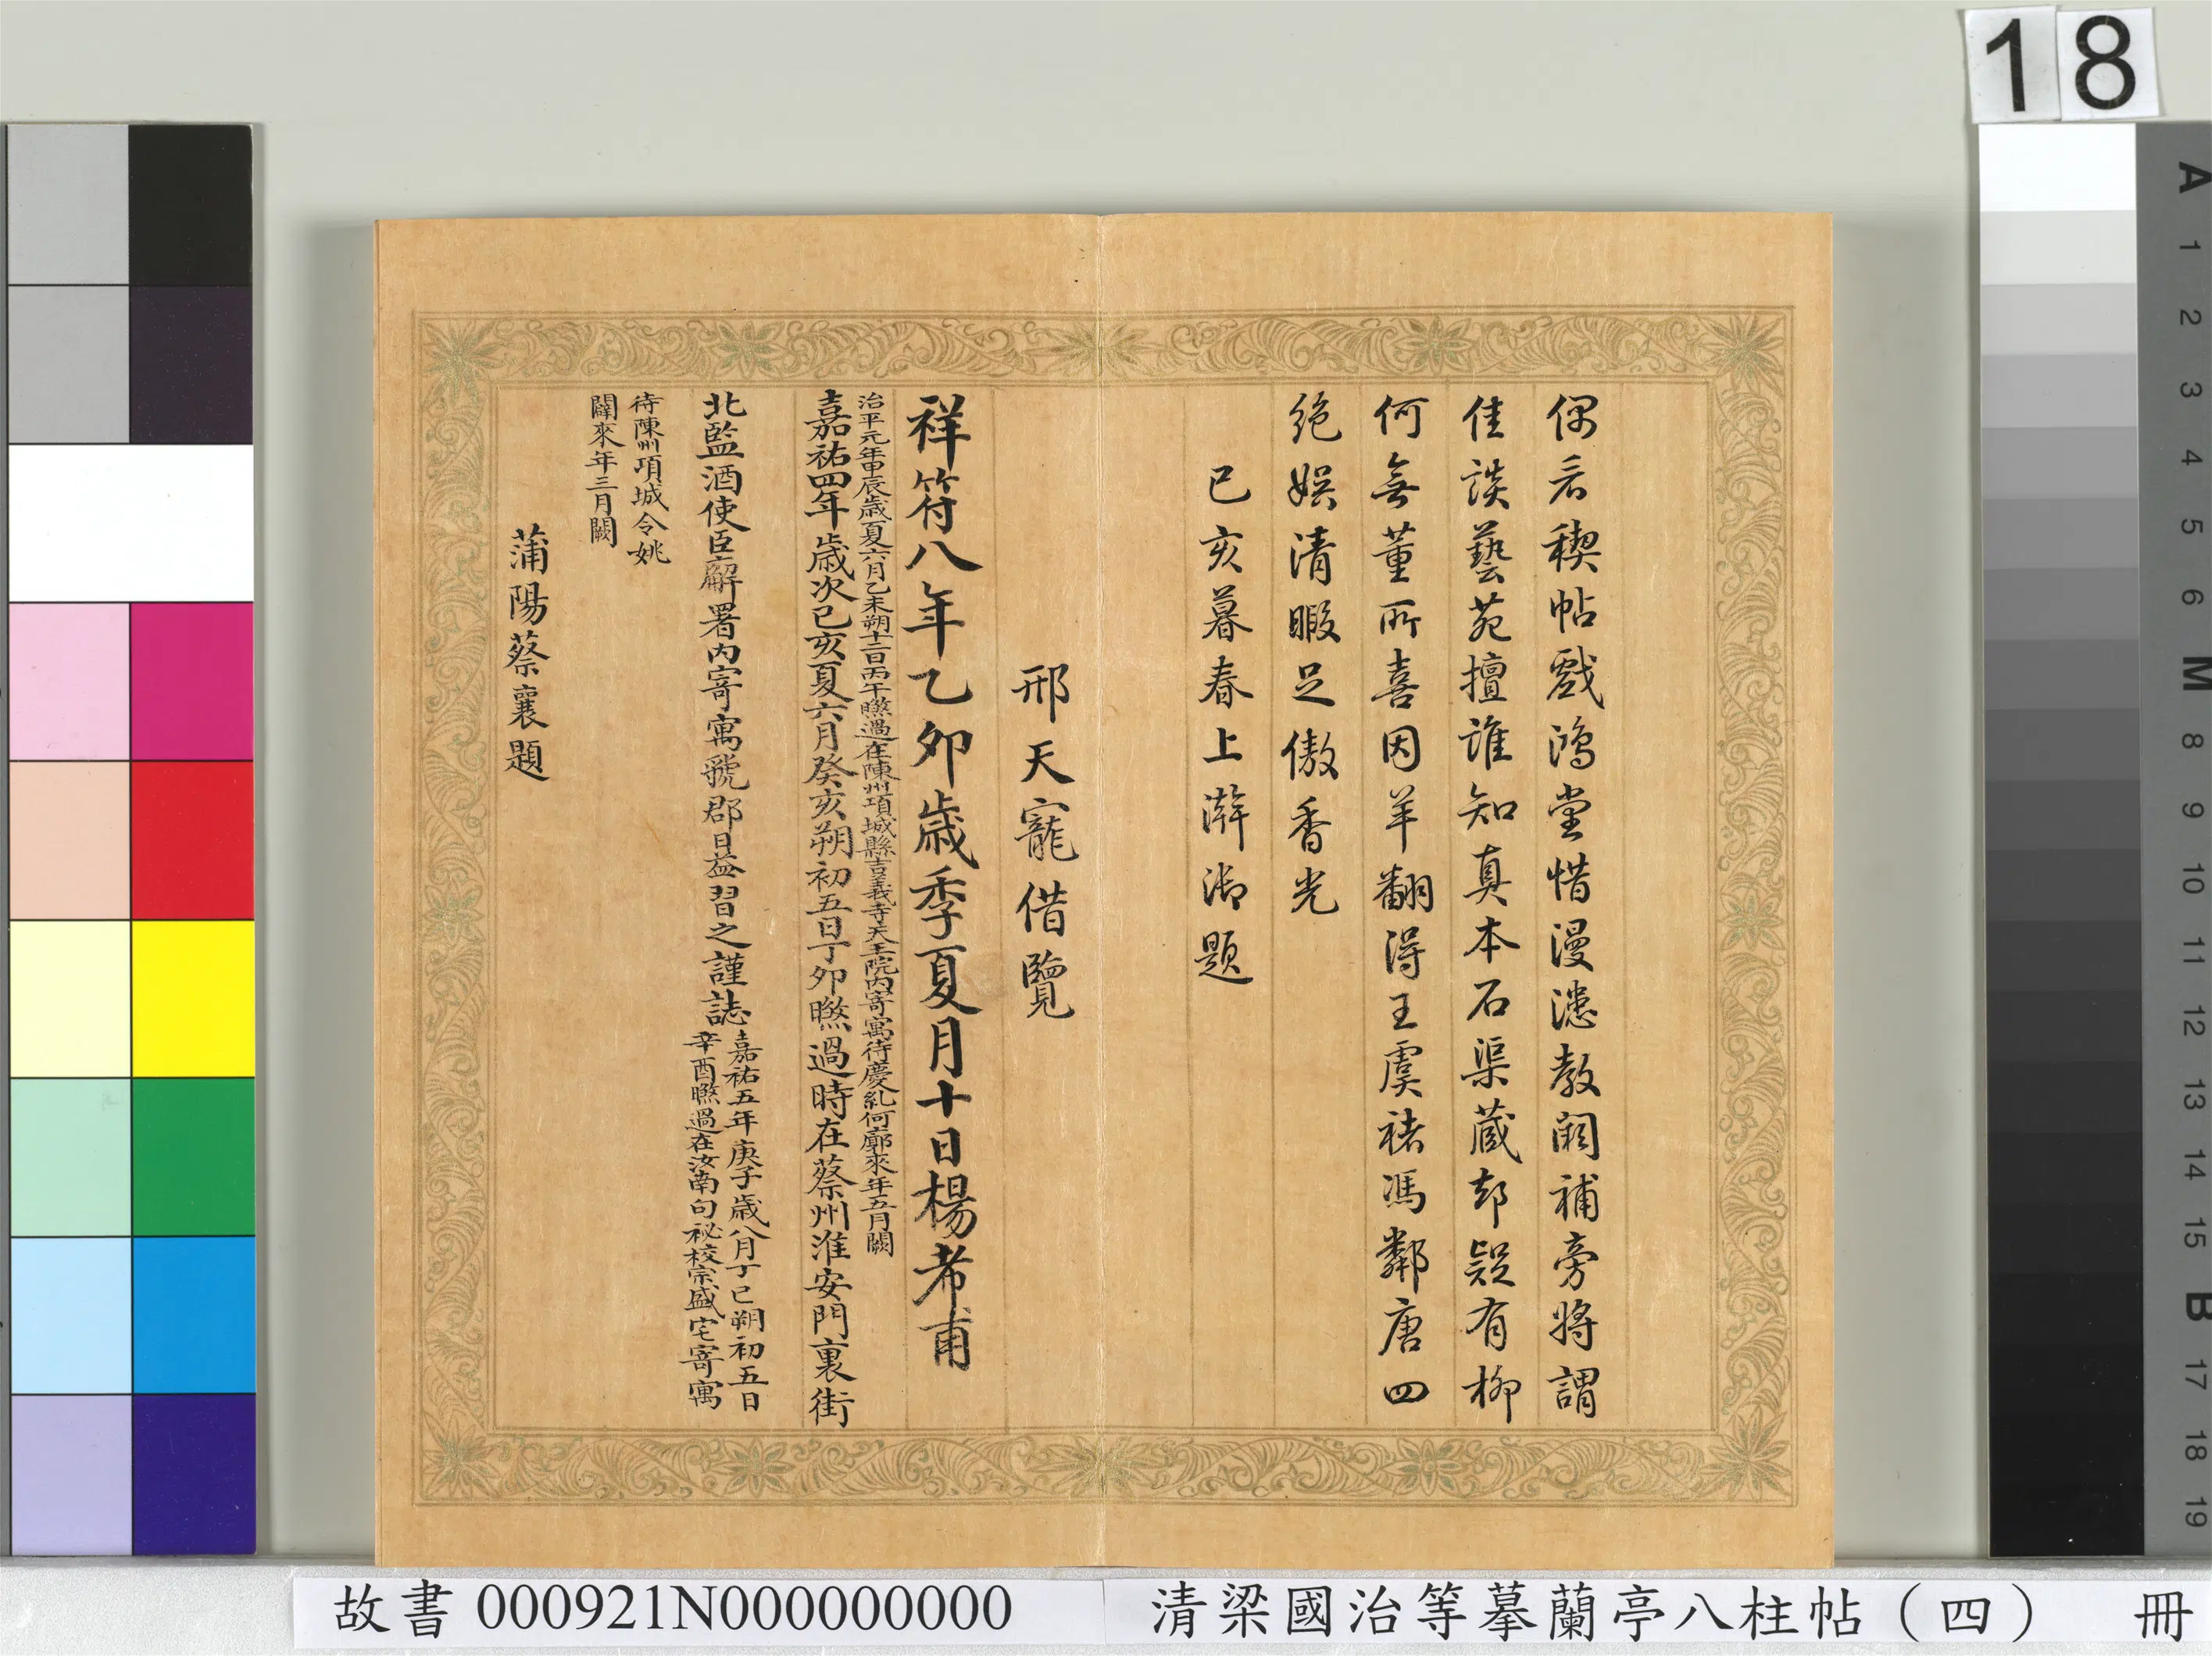 18
偶言禊帖戲鴻堂惜漫漶教闕補旁將謂
佳談藝苑擅誰知真本石渠藏却疑有柳
何無董所喜因羊翻得王虞褚馮鄰唐四
絶娛清暇足傲香光
己亥暮春上澣御題
邢天寵借覽
祥符八年乙卯歲季夏月十日楊希甫
治平元年甲辰歲夏六月乙未朔十二日丙午𣊬過在陳州項城縣吉義寺天王院內寄寓待慶糺何廓來年五月闕
嘉祐四年歲次己亥夏六月癸亥朔初五日丁卯𣊬過時在蔡州淮安門裏街
北監酒使臣廨署內寄寓虢郡日益習之謹誌
嘉祐五年庚子歲八月丁巳朔初五日
辛酉𣊬過在汝南句祕校宗盛宅寄寓
待陳州項城令姚
闢來年三月闕
蒲陽蔡襄題
A 1 2 3 4 5 6 M 8 9 10 11 12 13 14 15 B 17 18 19
故書 000921N000000000 清梁國治等摹蘭亭八柱帖（四） 冊